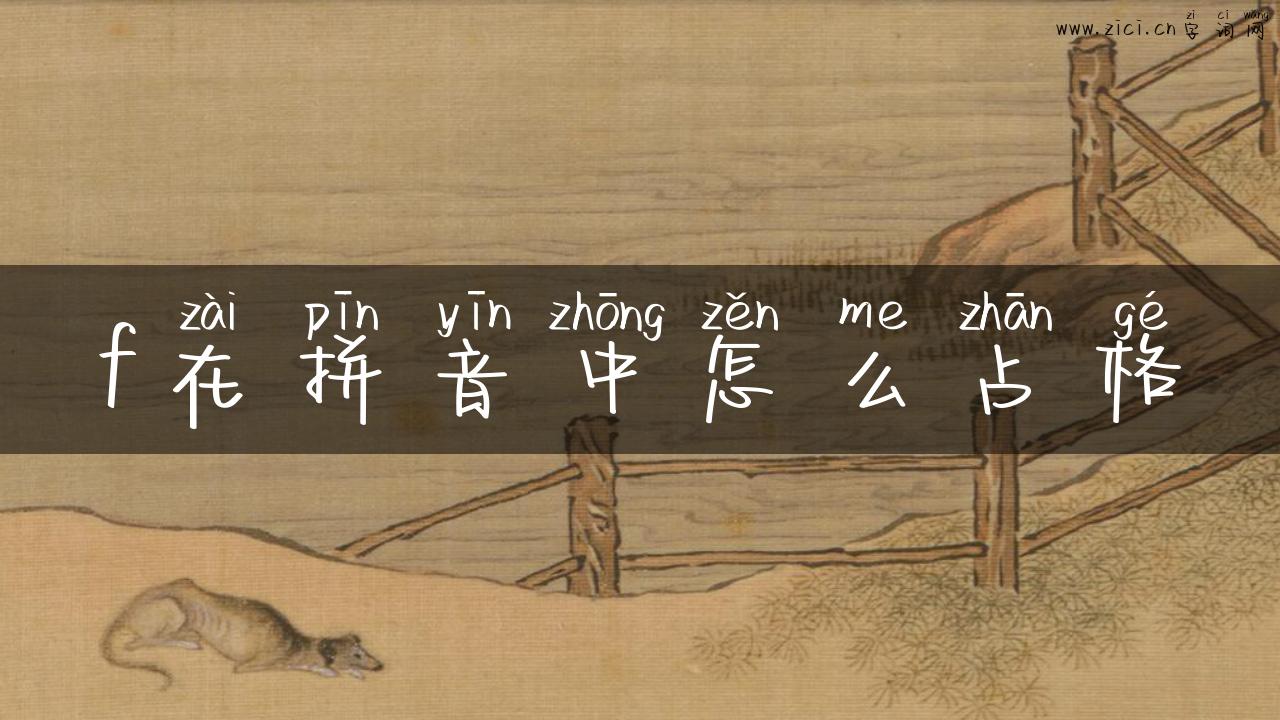 zi ci wang
www.zici.cn 字词网
zài pīn yīn zhōng zěn me zhān gé
f 在拼音中怎么占格